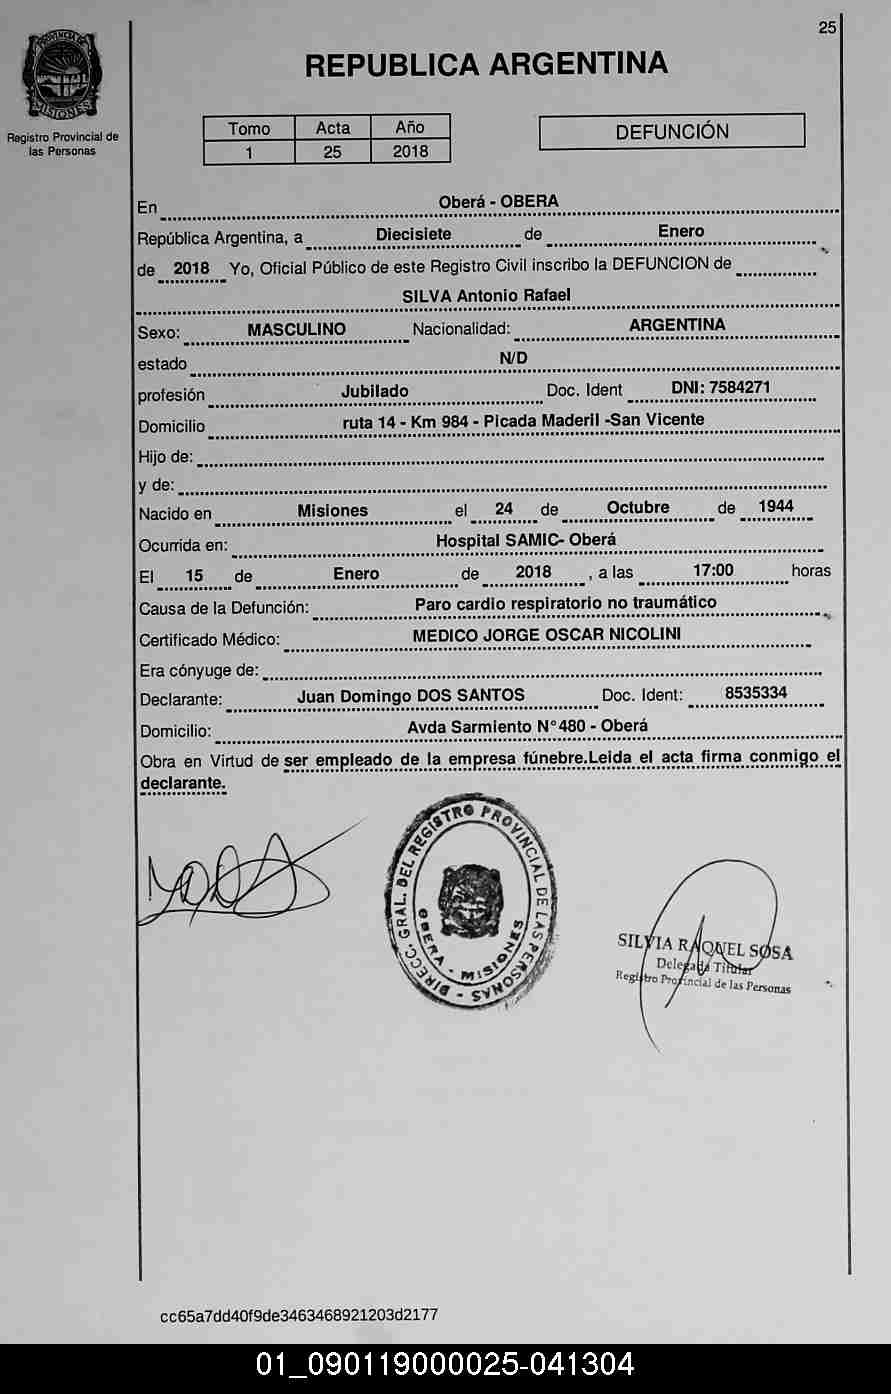 25
PROVINCIA DE
MISIONES
REPUBLICA ARGENTINA
Registro Provincial de
las Personas
Tomo Acta Año
1 25 2018
DEFUNCIÓN
En Oberá - OBERA
República Argentina, a Diecisiete de Enero
de 2018 Yo, Oficial Público de este Registro Civil inscribo la DEFUNCION de
SILVA Antonio Rafael
Sexo: MASCULINO Nacionalidad: ARGENTINA
estado N/D
profesión Jubilado Doc. Ident DNI: 7584271
Domicilio ruta 14 - Km 984 - Picada Maderil -San Vicente
Hijo de:
y de:
Nacido en Misiones el 24 de Octubre de 1944
Ocurrida en: Hospital SAMIC- Oberá
El 15 de Enero de 2018 , a las 17:00 horas
Causa de la Defunción: Paro cardio respiratorio no traumático
Certificado Médico: MEDICO JORGE OSCAR NICOLINI
Era cónyuge de:
Declarante: Juan Domingo DOS SANTOS Doc. Ident: 8535334
Domicilio: Avda Sarmiento N°480 - Oberá
Obra en Virtud de ser empleado de la empresa fúnebre.Leida el acta firma conmigo el
declarante.
DIRECC. GRAL. DEL REGISTRO PROVINCIAL DE LAS PERSONAS -
OBERA - MISIONES
SILVIA RAQUEL SOSA
Delegada Titular
Registro Provincial de las Personas
cc65a7dd40f9de3463468921203d2177
01_090119000025-041304